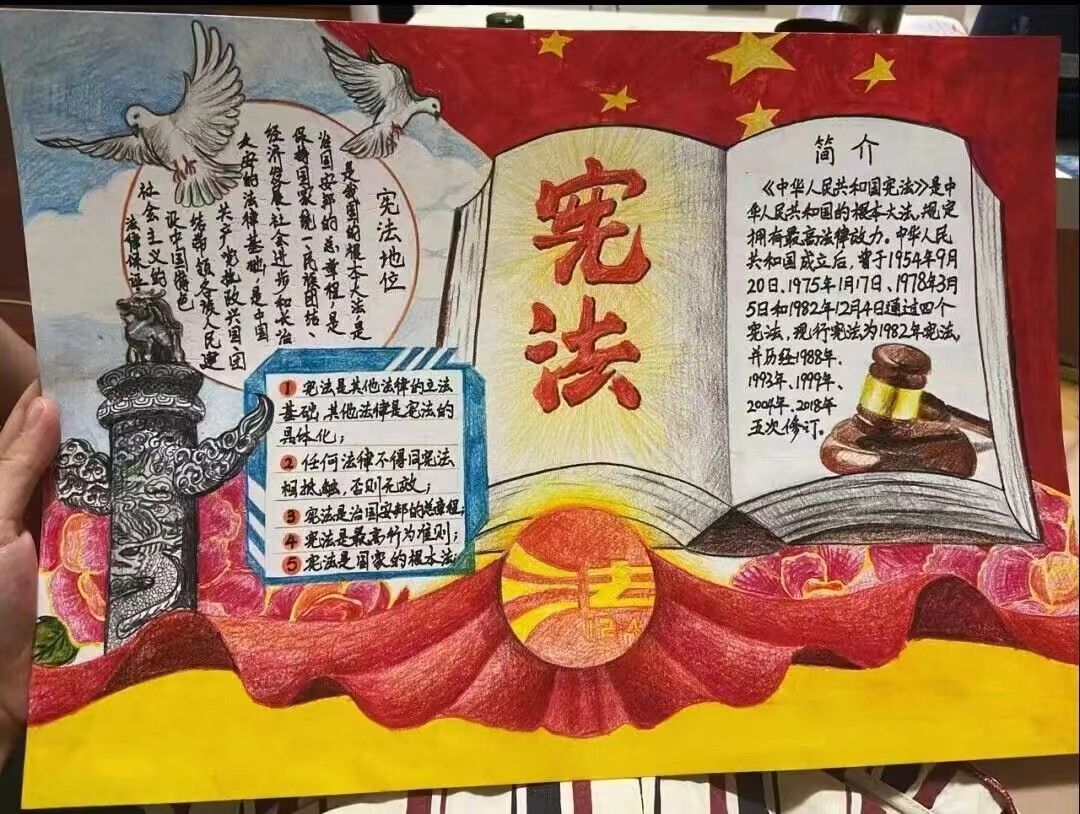 宪法地位
是我国的根本大法,是
治国安邦的总章程,是
保持国家统一、民族团结、
经济发展、社会进步和长治
久安的法律基础,是中国
共产党执政兴国、团
结带领各族人民建
设中国特色
社会主义的
法律保证
1 宪法是其他法律的立法
基础,其他法律是宪法的
具体化;
2 任何法律不得同宪法
相抵触,否则无效;
3 宪法是治国安邦的总章程;
4 宪法是最高行为准则;
5 宪法是国家的根本法.
宪法
简介
《中华人民共和国宪法》是中
华人民共和国的根本大法,规定
拥有最高法律效力。中华人民
共和国成立后,曾于1954年9月
20日、1975年1月17日、1978年3月
5日和1982年12月4日通过四个
宪法,现行宪法为1982年宪法,
并历经1988年、
1993年、1999年、
2004年、2018年
五次修订。
法
12·4